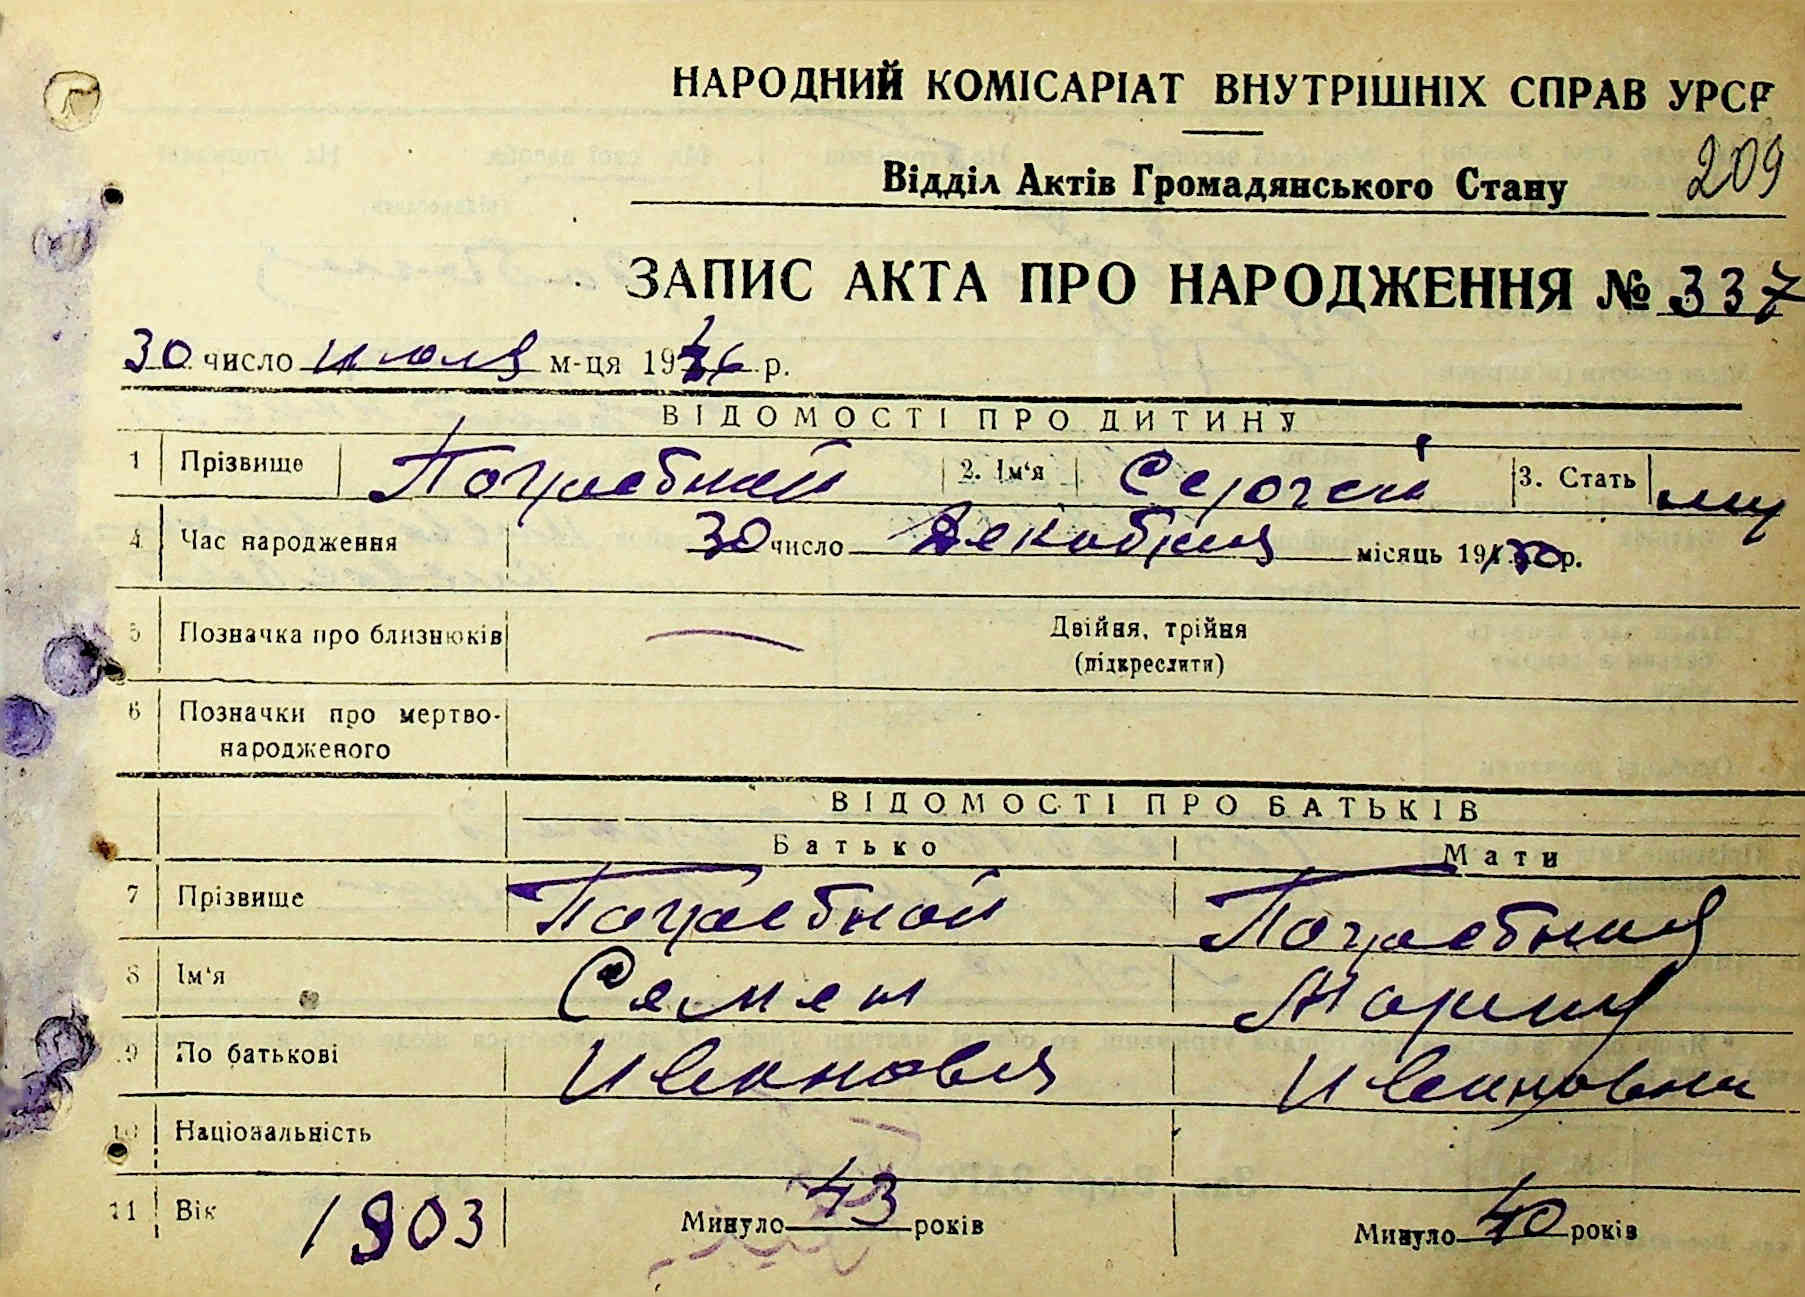 НАРОДНИЙ КОМІСАРІАТ ВНУТРІШНІХ СПРАВ УРСР
209
Відділ Актів Громадянського Стану
ЗАПИС АКТА ПРО НАРОДЖЕННЯ № 337
30 число июля м-ця 1946 р.
ВІДОМОСТІ ПРО ДИТИНУ
1 Прізвище Погребной 2. Ім'я Сергей 3. Стать муж
4 Час народження 30 число Декабря місяць 1930 р.
5 Позначка про близнюків — Двійня, трійня
(підкреслити)
6 Позначки про мертво-
народженого
ВІДОМОСТІ ПРО БАТЬКІВ
Батько Мати
7 Прізвище Погребной Погребная
8 Ім'я Семен Мария
9 По батькові Иванович Ивановна
10 Національність
11 Вік 1903 Минуло 43 років Минуло 40 років